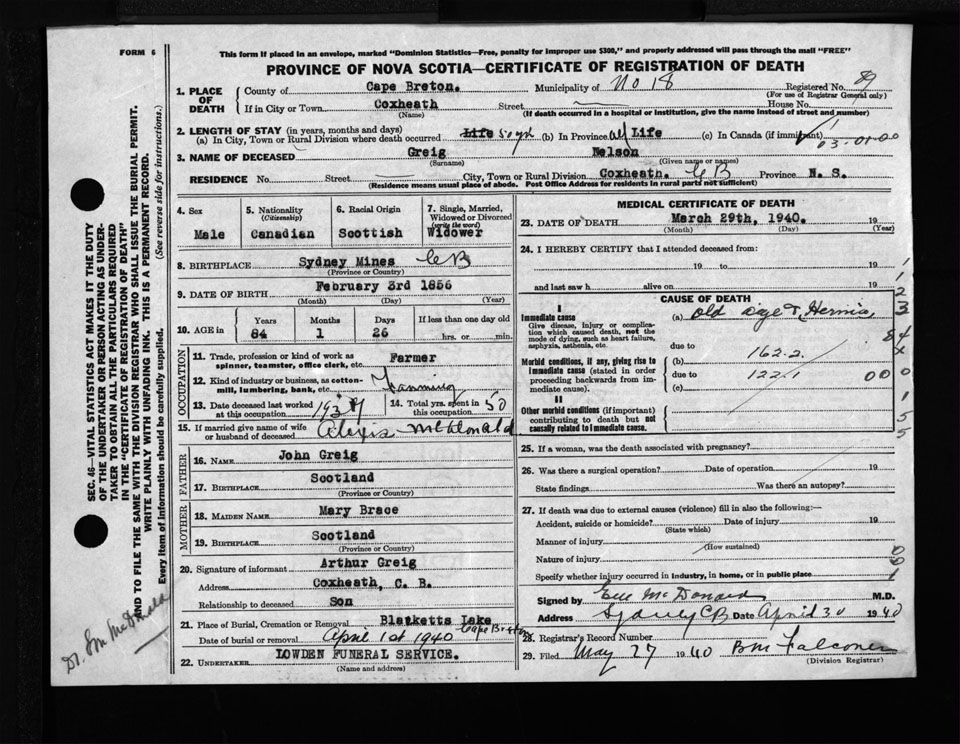 FORM 6
This form if placed in an envelope, marked "Dominion Statistics—Free, penalty for improper use $300," and properly addressed will pass through the mail "FREE"
PROVINCE OF NOVA SCOTIA—CERTIFICATE OF REGISTRATION OF DEATH
1. PLACE OF DEATH
County of Cape Breton. Municipality of No 18 Registered No. 89
(For use of Registrar General only)
If in City or Town Coxheath Street House No.
(Name) (If death occurred in a hospital or institution, give the name instead of street and number)
2. LENGTH OF STAY (in years, months and days)
(a) In City, Town or Rural Division where death occurred Life 50 yrs (b) In Province all Life (c) In Canada (if immigrant)
03-01-00
3. NAME OF DECEASED Greig Nelson
(Surname) (Given name or names)
RESIDENCE No. Street City, Town or Rural Division Coxheath. C B Province N. S.
(Residence means usual place of abode. Post Office Address for residents in rural parts not sufficient)
4. Sex
Male
5. Nationality (Citizenship)
Canadian
6. Racial Origin
Scottish
7. Single, Married, Widowed or Divorced (write the word)
Widower
8. BIRTHPLACE Sydney Mines C B
(Province or Country)
9. DATE OF BIRTH February 3rd 1856
(Month) (Day) (Year)
10. AGE in Years Months Days If less than one day old
84 1 26 hrs. or min.
OCCUPATION
11. Trade, profession or kind of work as spinner, teamster, office clerk, etc. Farmer
12. Kind of industry or business, as cotton-mill, lumbering, bank, etc. Farming
13. Date deceased last worked at this occupation 1937
14. Total yrs. spent in this occupation 50
15. If married give name of wife or husband of deceased Alexis McDonald
FATHER
16. NAME John Greig
17. BIRTHPLACE Scotland
(Province or Country)
MOTHER
18. MAIDEN NAME Mary Brace
19. BIRTHPLACE Scotland
(Province or Country)
20. Signature of informant Arthur Greig
Address Coxheath, C. B.
Relationship to deceased Son
21. Place of Burial, Cremation or Removal Blacketts Lake
Cape Breton
Date of burial or removal April 1st 1940
22. UNDERTAKER LOWDEN FUNERAL SERVICE.
(Name and address)
MEDICAL CERTIFICATE OF DEATH
23. DATE OF DEATH March 29th, 1940. 19
(Month) (Day) (Year)
24. I HEREBY CERTIFY that I attended deceased from:
19 to 19
and last saw h alive on 19
CAUSE OF DEATH
I
Immediate cause
Give disease, injury or complication which caused death, not the mode of dying, such as heart failure, asphyxia, asthenia, etc.
(a) Old age & Hernia
due to
Morbid conditions, if any, giving rise to immediate cause (stated in order proceeding backwards from immediate cause).
(b) 162.2.
due to 122.1
(c)
000
II
Other morbid conditions (if important) contributing to death but not causally related to immediate cause.
25. If a woman, was the death associated with pregnancy?
26. Was there a surgical operation? Date of operation 19
State findings Was there an autopsy?
27. If death was due to external causes (violence) fill in also the following:—
Accident, suicide or homicide? Date of injury 19
(State which)
Manner of injury
(How sustained)
Nature of injury
Specify whether injury occurred in industry, in home, or in public place
Signed by McDonald M.D.
Address Sydney CB Date April 30 1940
28. Registrar's Record Number
29. Filed May 27 1940 BM Falconer
(Division Registrar)
SEC. 46—VITAL STATISTICS ACT MAKES IT THE DUTY
OF THE UNDERTAKER OR PERSON ACTING AS UNDER-
TAKER TO OBTAIN ALL THE PARTICULARS REQUIRED
IN THE "CERTIFICATE OF REGISTRATION OF DEATH"
AND TO FILE THE SAME WITH THE DIVISION REGISTRAR WHO SHALL ISSUE THE BURIAL PERMIT.
WRITE PLAINLY WITH UNFADING INK. THIS IS A PERMANENT RECORD.
Every item of information should be carefully supplied. (See reverse side for instructions.)
Dr. McDonald